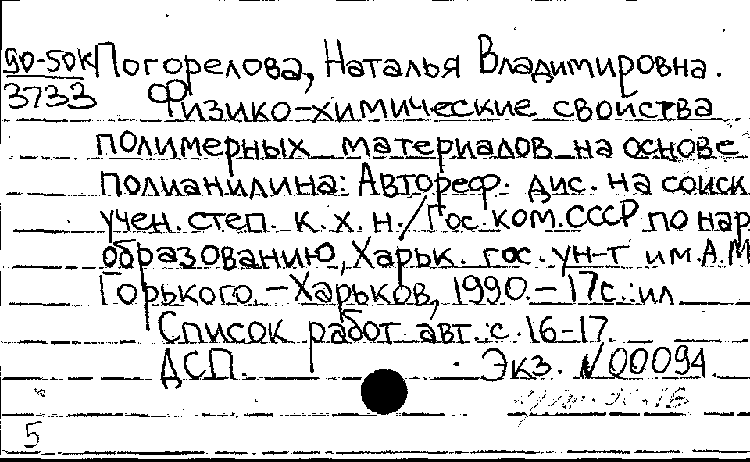 90-50к Погорелова, Наталья Владимировна.
3733 Физико-химические свойства
полимерных материалов на основе
полианилина: Автореф. дис. на соиск
учен. степ. к. х. н. / Гос. ком. СССР по нар
образованию, Харьк. гос. ун-т им. А.М
Горького. – Харьков, 1990. – 17с.: ил
Список работ авт.: с. 16-17.
ДСП. Экз. №00094.
5